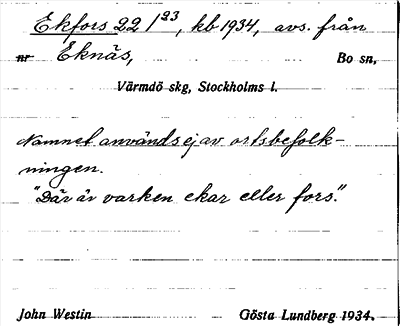 Ekfors 22/23, kb 1934, avs. från
nr Eknäs, Bo sn,
Värmdö skg, Stockholms l.
Namnet används ej av ortsbefolk-
ningen.
"Där är varken ekar eller fors."
John Westin Gösta Lundberg 1934.